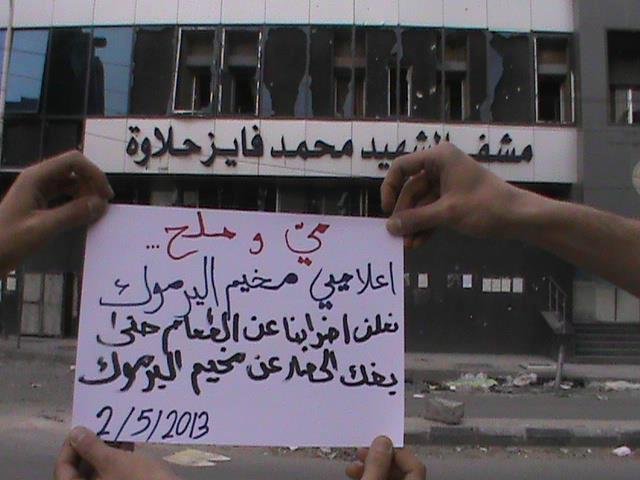 مشفى الشهيد محمد فايز حلاوة
ميّ و ملح...
اعلاميي مخيم اليرموك
نعلن اضرابنا عن الطعام حتى
يفك الحصار عن مخيم اليرموك
2/5/2013